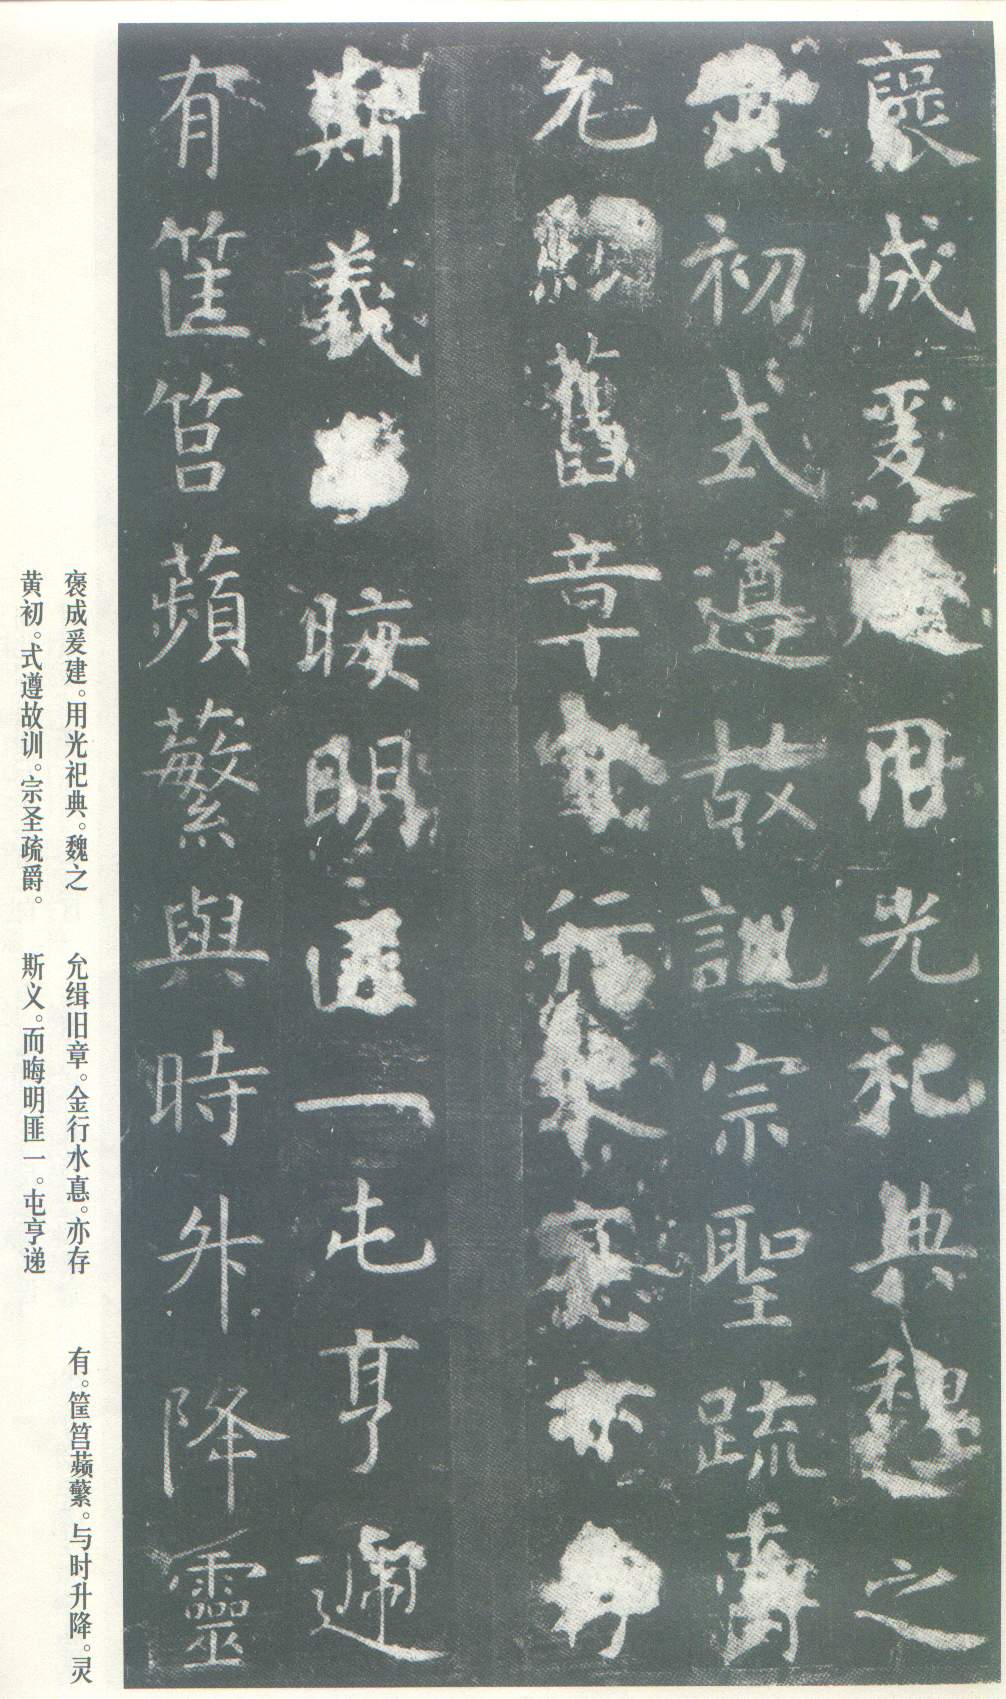 褒成爰建用光祀典魏之
黄初式遵故訓宗聖疏爵
允緝舊章金行水悳亦存
斯義而晦明匪一屯亨遞
有筐筥蘋蘩與時升降靈
褒成爰建。用光祀典。魏之
黄初。式遵故训。宗圣疏爵。
允缉旧章。金行水悳。亦存
斯义。而晦明匪一。屯亨递
有。筐筥蘋蘩。与时升降。灵